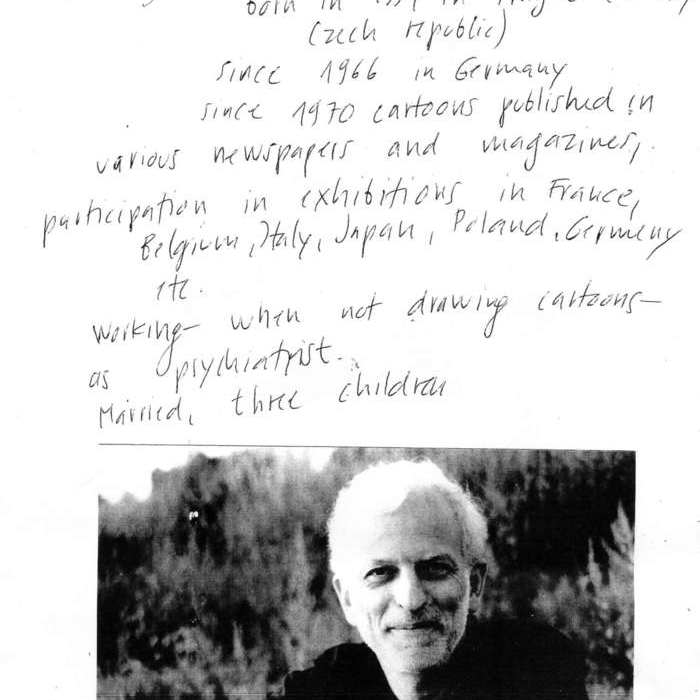 born in
(Czech republic)
since 1966 in Germany
since 1970 cartoons published in
various newspapers and magazines,
participation in exhibitions in France,
Belgium, Italy, Japan, Poland, Germany
etc.
working— when not drawing cartoons—
as psychiatrist.
Married, three children